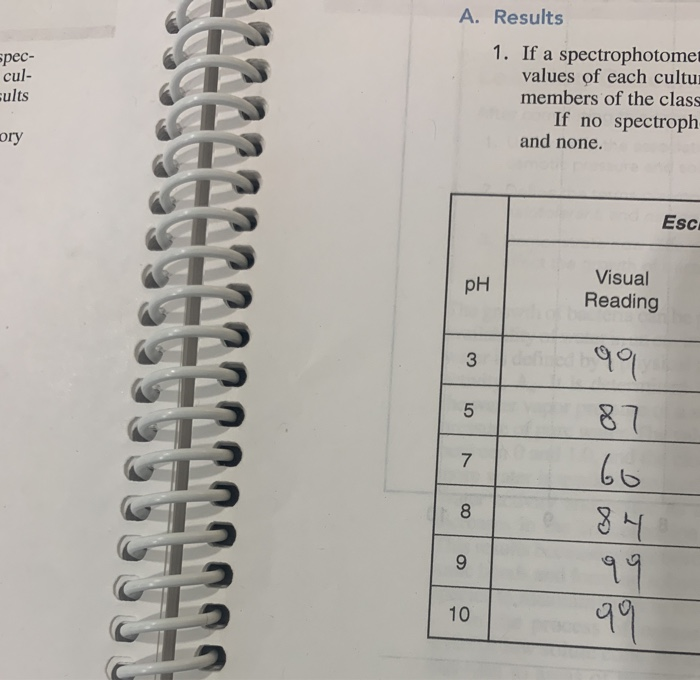 spec-
cul-
sults
ory
A. Results
1. If a spectrophotomet
values of each cultur
members of the class
If no spectroph
and none.
Esc
pH
Visual
Reading
3 99
5 87
7 66
8 84
9 99
10 99